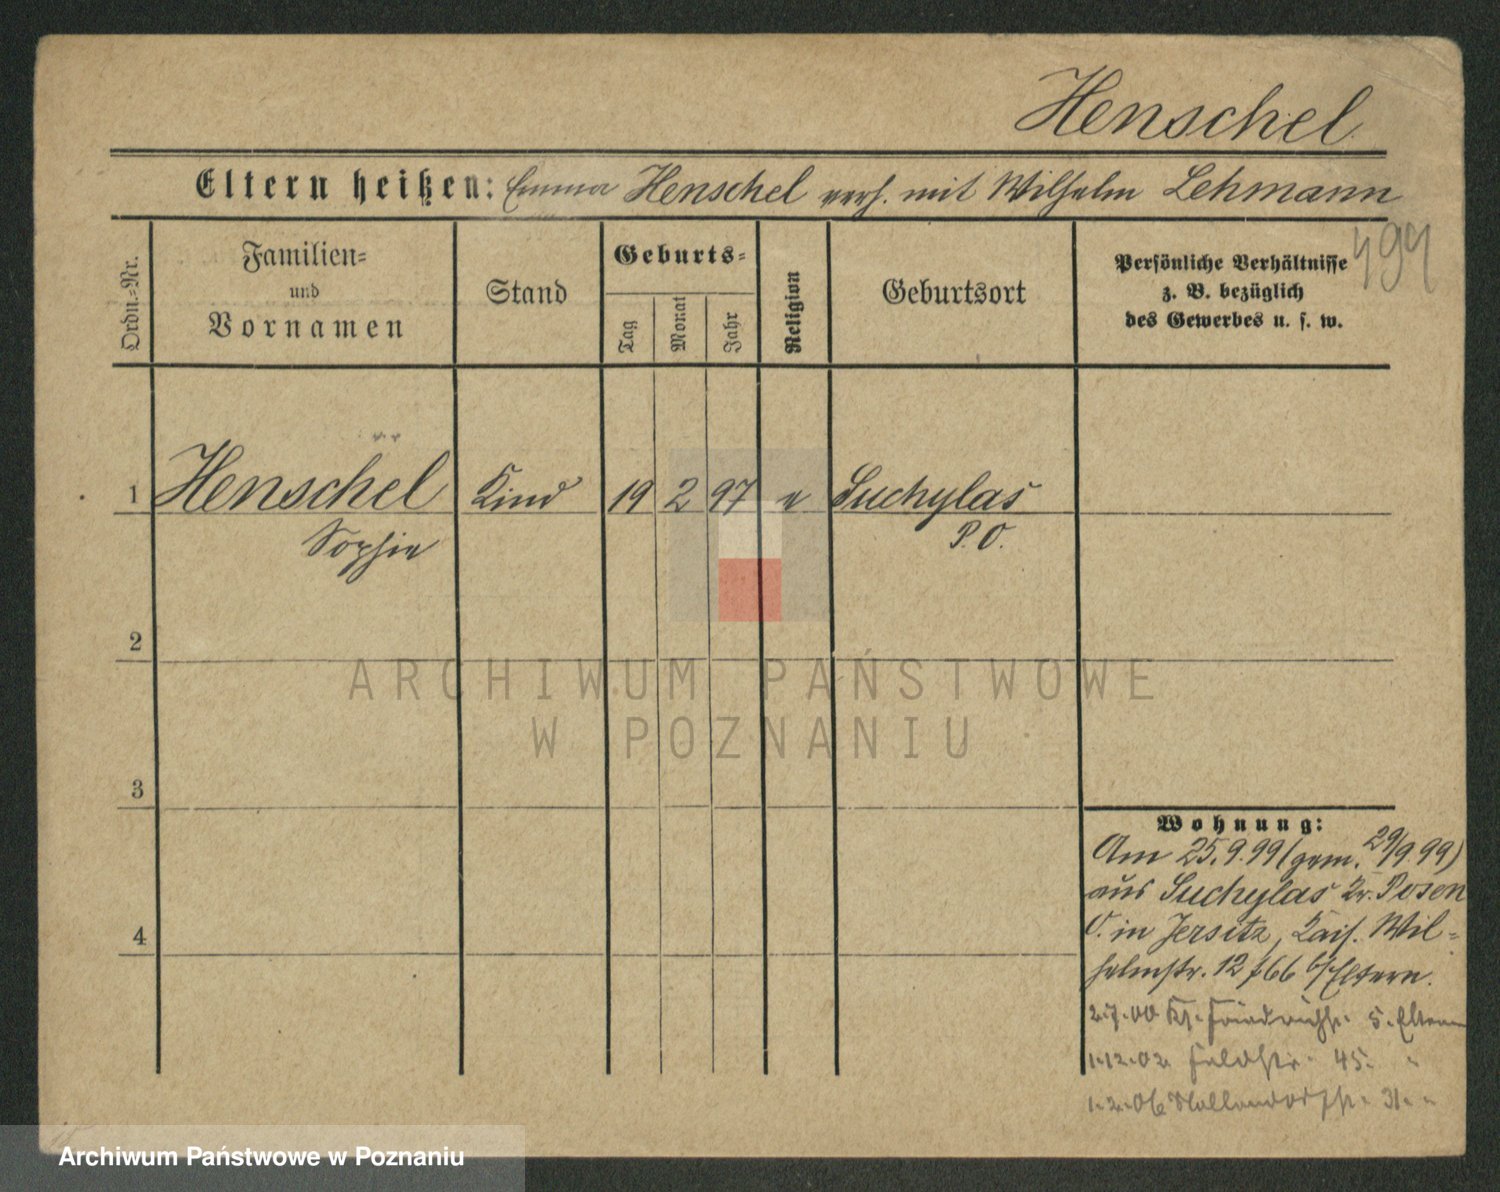 Henschel
Eltern heißen: Emma Henschel verh. mit Wilhelm Lehmann
494
Ordn.-Nr.
Familien-
und
Vornamen
Stand
Geburts-
Tag
Monat
Jahr
Religion
Geburtsort
Persönliche Verhältnisse
z. B. bezüglich
des Gewerbes u. s. w.
1 Henschel Kind 19 2 97 e Suchylas
Sophie P. O.
2
3
4
Wohnung:
Am 25.9.99 (gem. 29/9.99)
aus Suchylas Kr. Posen
O. in Jersitz, Kais. Wil-
helmstr. 12 /66 b/Eltern.
2.7.00 Kl. Friedrichstr. 5. Eltern
1.12.02 Feldstr. 45. "
1.2.06 31. "
ARCHIWUM PAŃSTWOWE
W POZNANIU
Archiwum Państwowe w Poznaniu